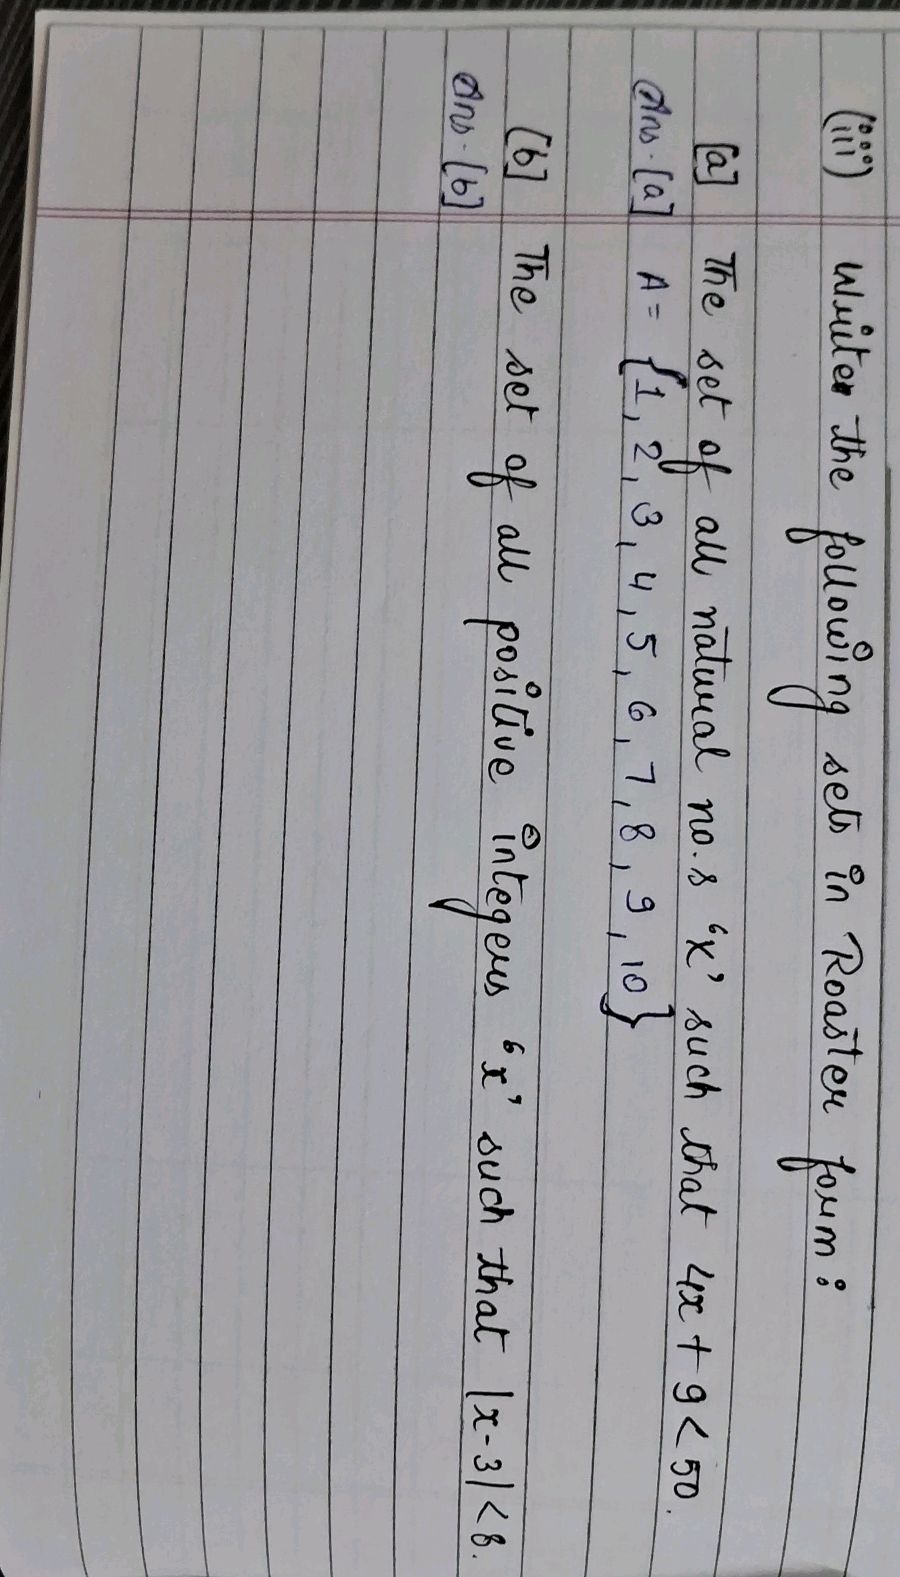 (iii) Write the following sets in Roaster form:
[a] The set of all natural no.s 'x' such that 4x + 9 < 50.
Ans.[a] A = {1, 2, 3, 4, 5, 6, 7, 8, 9, 10}
[b] The set of all positive integers 'x' such that |x-3| < 8.
Ans.[b]